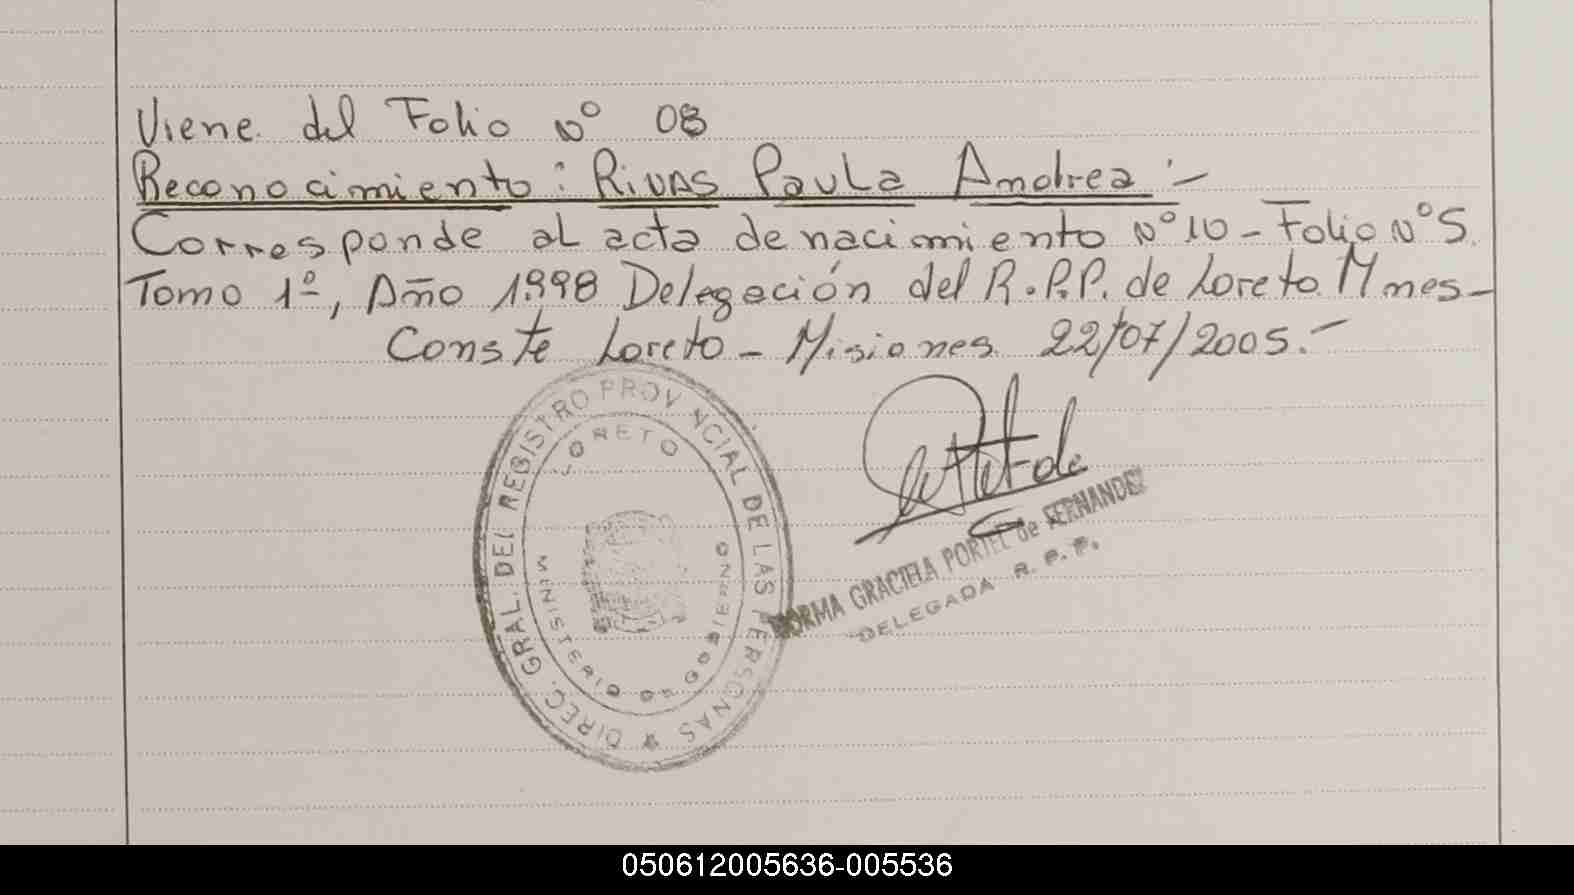 Viene del Folio Nº 08
Reconocimiento: Rivas Paula Andrea.-
Corresponde al acta de nacimiento Nº 10 - Folio Nº 5.
Tomo 1º, Año 1998 Delegación del R.P.P. de Loreto Mnes-
Conste Loreto - Misiones 22/07/2005.-
DIREC. GRAL. DEL REGISTRO PROVINCIAL DE LAS PERSONAS
LORETO
MINISTERIO DE GOBIERNO
NORMA GRACIELA PORTEL de FERNANDEZ
DELEGADA R. P. P.
050612005636-005536